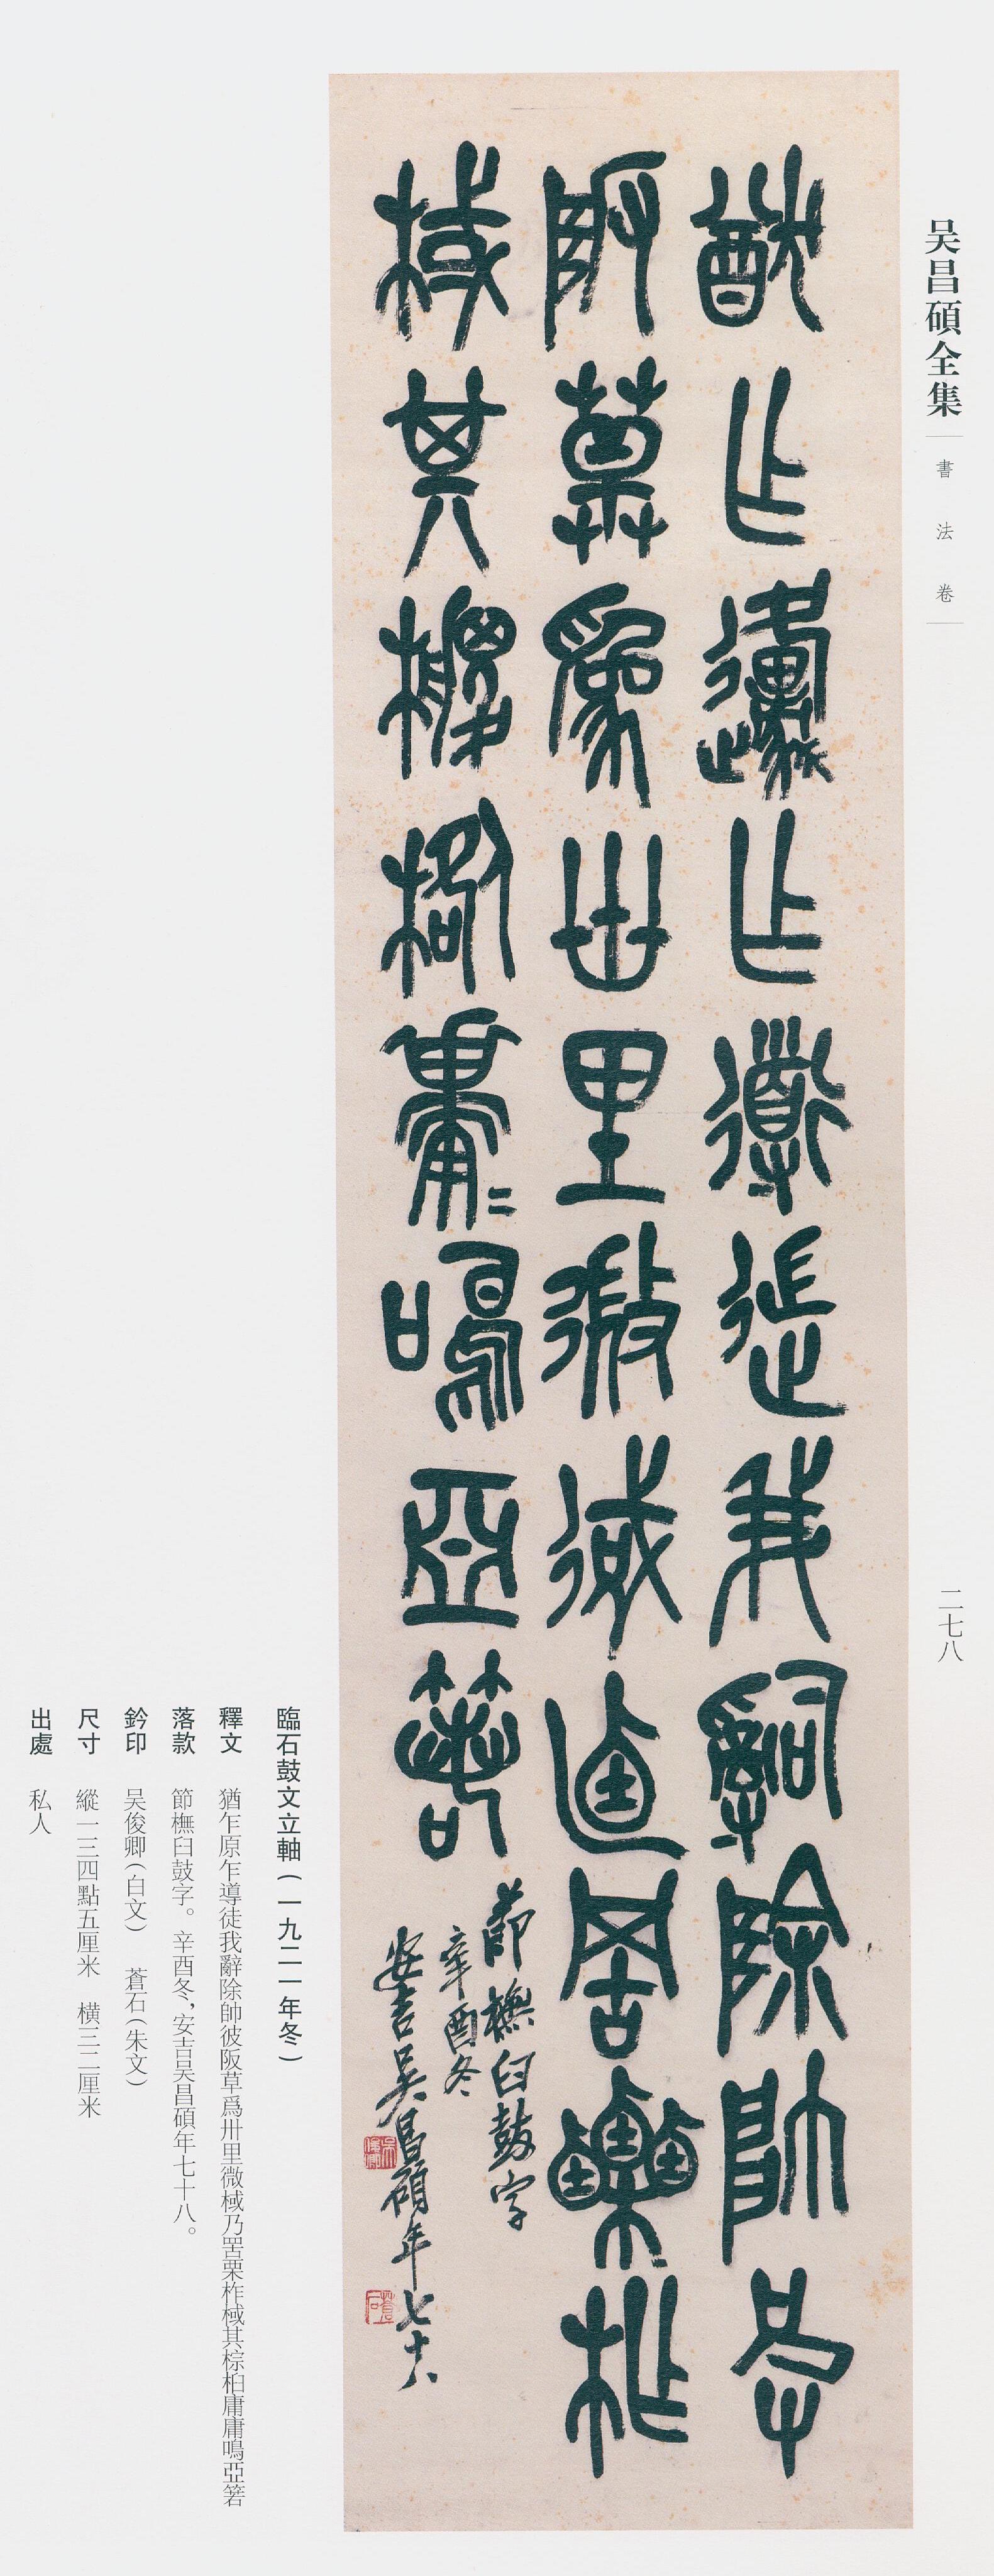 吴昌碩全集
書法卷
二七八
猷乍邍乍導徒我辭除帥彼
阪草爲卅里微棫乃罟栗柞
棫其椶楮庸〻鳴亞箬
節橅臼鼓字
辛酉冬
安吉吳昌碩年七十八
吳俊卿
蒼石
臨石鼓文立軸(一九二一年冬)
釋文 猶乍原乍導徒我辭除帥彼阪草爲卅里微棫乃罟栗柞棫其棕桕庸庸鳴亞箬
落款 節橅臼鼓字。辛酉冬,安吉吴昌碩年七十八。
鈐印 吴俊卿(白文) 蒼石(朱文)
尺寸 縱一三四點五厘米 橫三二厘米
出處 私人